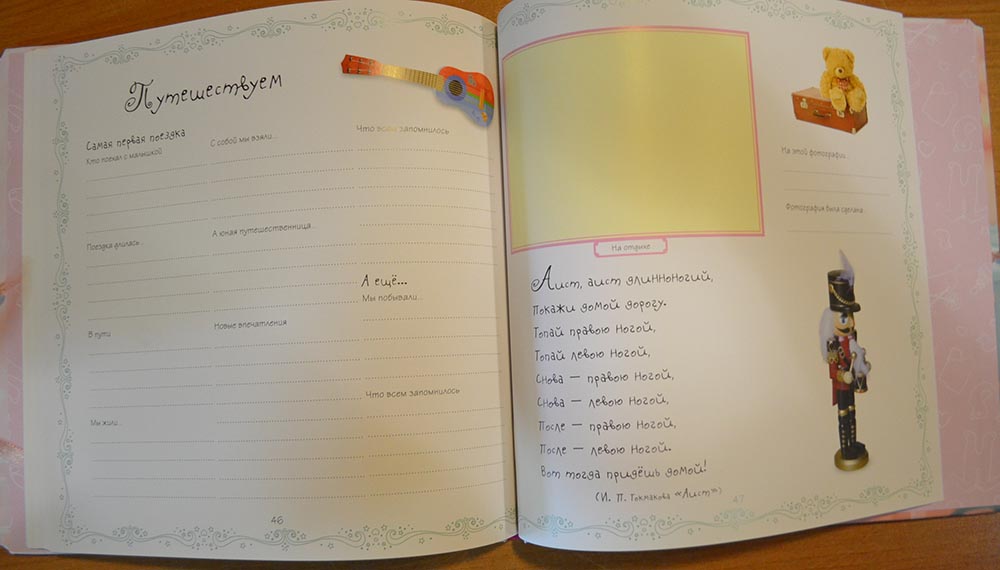 Путешествуем
Самая первая поездка
Кто поехал с малышкой
С собой мы взяли...
Что всем запомнилось
Поездка длилась...
А юная путешественница...
А ещё...
Мы побывали...
В пути
Новые впечатления
Что всем запомнилось
Мы жили...
46
На отдыхе
На этой фотографии...
Фотография была сделана...
Аист, аист длинноногий,
Покажи домой дорогу.
Топай правою ногой,
Топай левою ногой,
Снова — правою ногой,
Снова — левою ногой,
После — правою ногой,
После — левою ногой.
Вот тогда придёшь домой!
(И. П. Токмакова «Аист»)
47